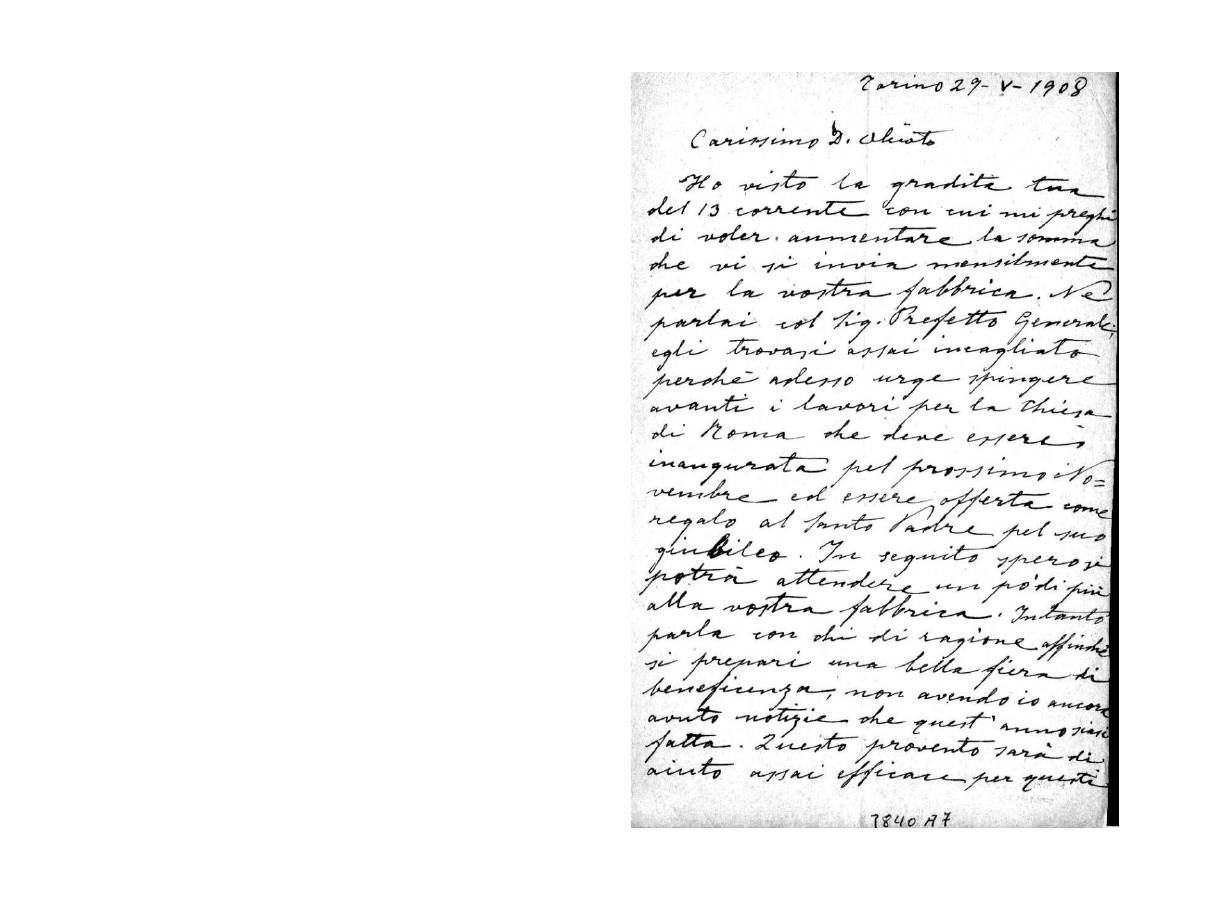 Torino 29-V-1908
Carissimo D.
Ho visto la gradita tua
del 13 corrente con cui mi preghi
di voler aumentare la somma
che vi si invia mensilmente
per la vostra fabbrica. Ne
parlai col Sig. Prefetto Generale;
egli trovasi assai incagliato
perchè adesso urge spingere
avanti i lavori per la Chiesa
di Roma che deve essere
inaugurata pel prossimo No=
vembre ed essere offerta come
regalo al Santo Padre pel suo
giubileo. In seguito spero si
potrà attendere un pò di più
alla vostra fabbrica. Intanto
parla con chi di ragione affinchè
si prepari una bella fiera di
beneficenza, non avendo io ancora
avuto notizie che quest'anno siasi
fatta. Questo provento sarà di
aiuto assai efficace per questi
3840 A7